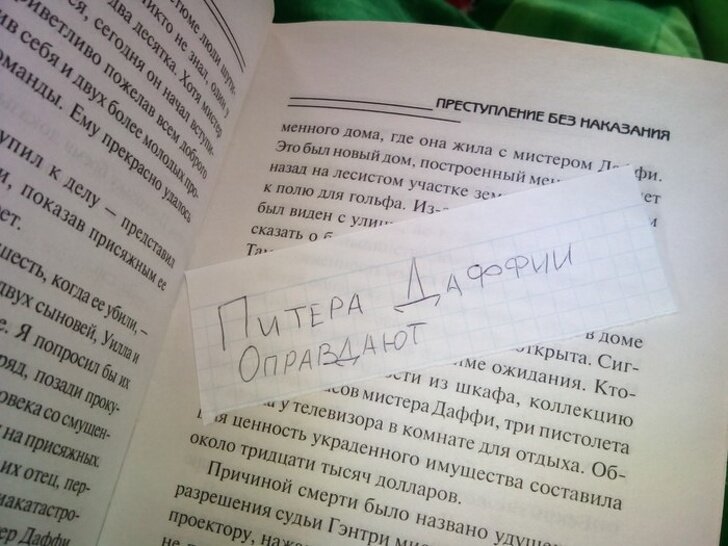 стюме люди шути-
никто не знал, один у
два десятка. Хотя мистер
ся, сегодня он начал вступи-
риветливо пожелав всем доброго
ив себя и двух более молодых про-
оманды. Ему прекрасно удалось
упил к делу — представил
и, показав присяжным ее
рет.
шесть, когда ее убили, —
двух сыновей, Уилла и
е. Я попросил бы их
ряд, позади проку-
овека со смущен-
на присяжных.
их отец, пер-
иакатастро-
ер Даффи
ПРЕСТУПЛЕНИЕ БЕЗ НАКАЗАНИЯ
менного дома, где она жила с мистером Даффи.
Это был новый дом, построенный мен ет
назад на лесистом участке зем
к полю для гольфа. Из-
был виден с улиц
сказать о б
Там
ПИТЕРА ДАФФИИ
ОПРАВДАЮТ
в доме
открыта. Сиг-
име ожидания. Кто-
ости из шкафа, коллекцию
асов мистера Даффи, три пистолета
а у телевизора в комнате для отдыха. Об-
щая ценность украденного имущества составила
около тридцати тысяч долларов.
Причиной смерти было названо удуше
разрешения судьи Гэнтри мис
проектору, наж